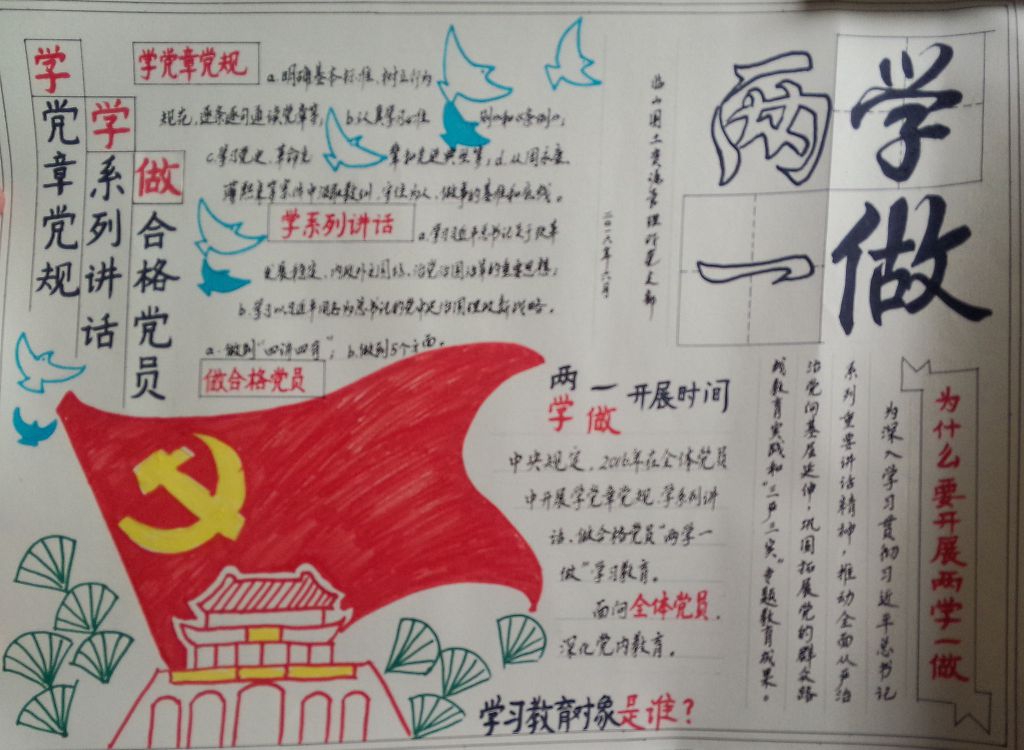 学党章党规
学系列讲话
做合格党员
学党章党规
a.明确基本标准,树立行为
规范,逐条逐句通读党章等;b.认真学习《准则》和《条例》;
c.学习党史、革命先辈和先进典型等;d.从周永康、
薄熙来等案件中汲取教训,守住为人、做事的基准和底线。
学系列讲话
a.学习习近平总书记关于改革
发展稳定、内政外交国防、治党治国治军的重要思想;
b.学习以习近平同志为总书记的党中央治国理政新战略。
a.做到"四讲四有";b.做到5个方面。
做合格党员
二〇一六年六月
两学一做
两学一做开展时间
中央规定,2016年在全体党员
中开展学党章党规、学系列讲
话、做合格党员"两学一
做"学习教育。
面向全体党员,
深化党内教育。
学习教育对象是谁?
为什么要开展两学一做
为深入学习贯彻习近平总书记
系列重要讲话精神,推动全面从严治
治党向基层延伸,巩固拓展党的群众路
线教育实践和"三严三实"专题教育成果。